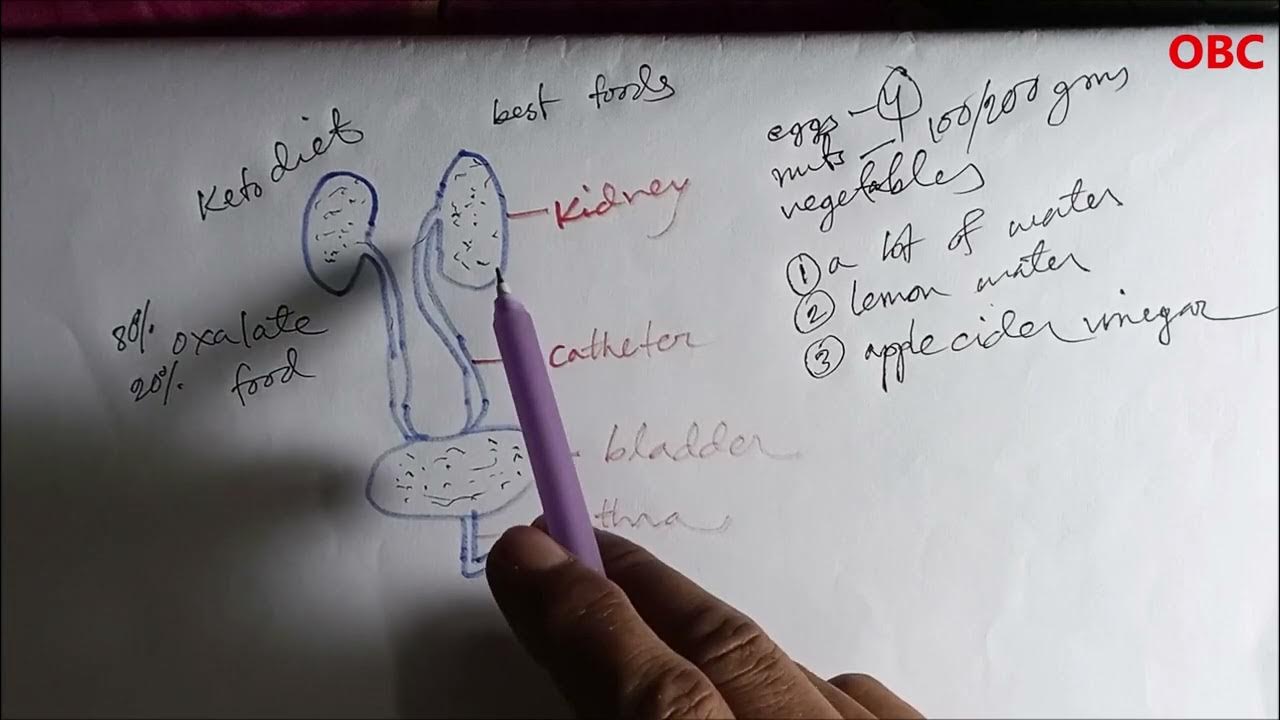 OBC
Keto diet
best foods
eggs - 4
nuts - 100/200 gms
vegetables
Kidney
① a lot of water
② lemon water
③ apple cider vinegar
80% oxalate
20% food
catheter
bladder
thra